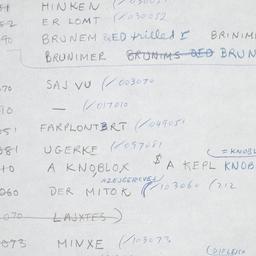 HINKEN (/030051
ER LOMT (/030052
90 BRUNEM BED trilled r BRINIM
BRUNIMER BRUNIMS BED BRUN
070 SAJ VU (/003070
10 — (/017010
051 FARPLONTBRT (/049051
081 UGERKE (/057051
= KNOBL
40 A KNOBLOX $ A KEPL KNOB
060 DER MITOK (/103060 (212
070 LAJXTES)
073 MINXE (/103073